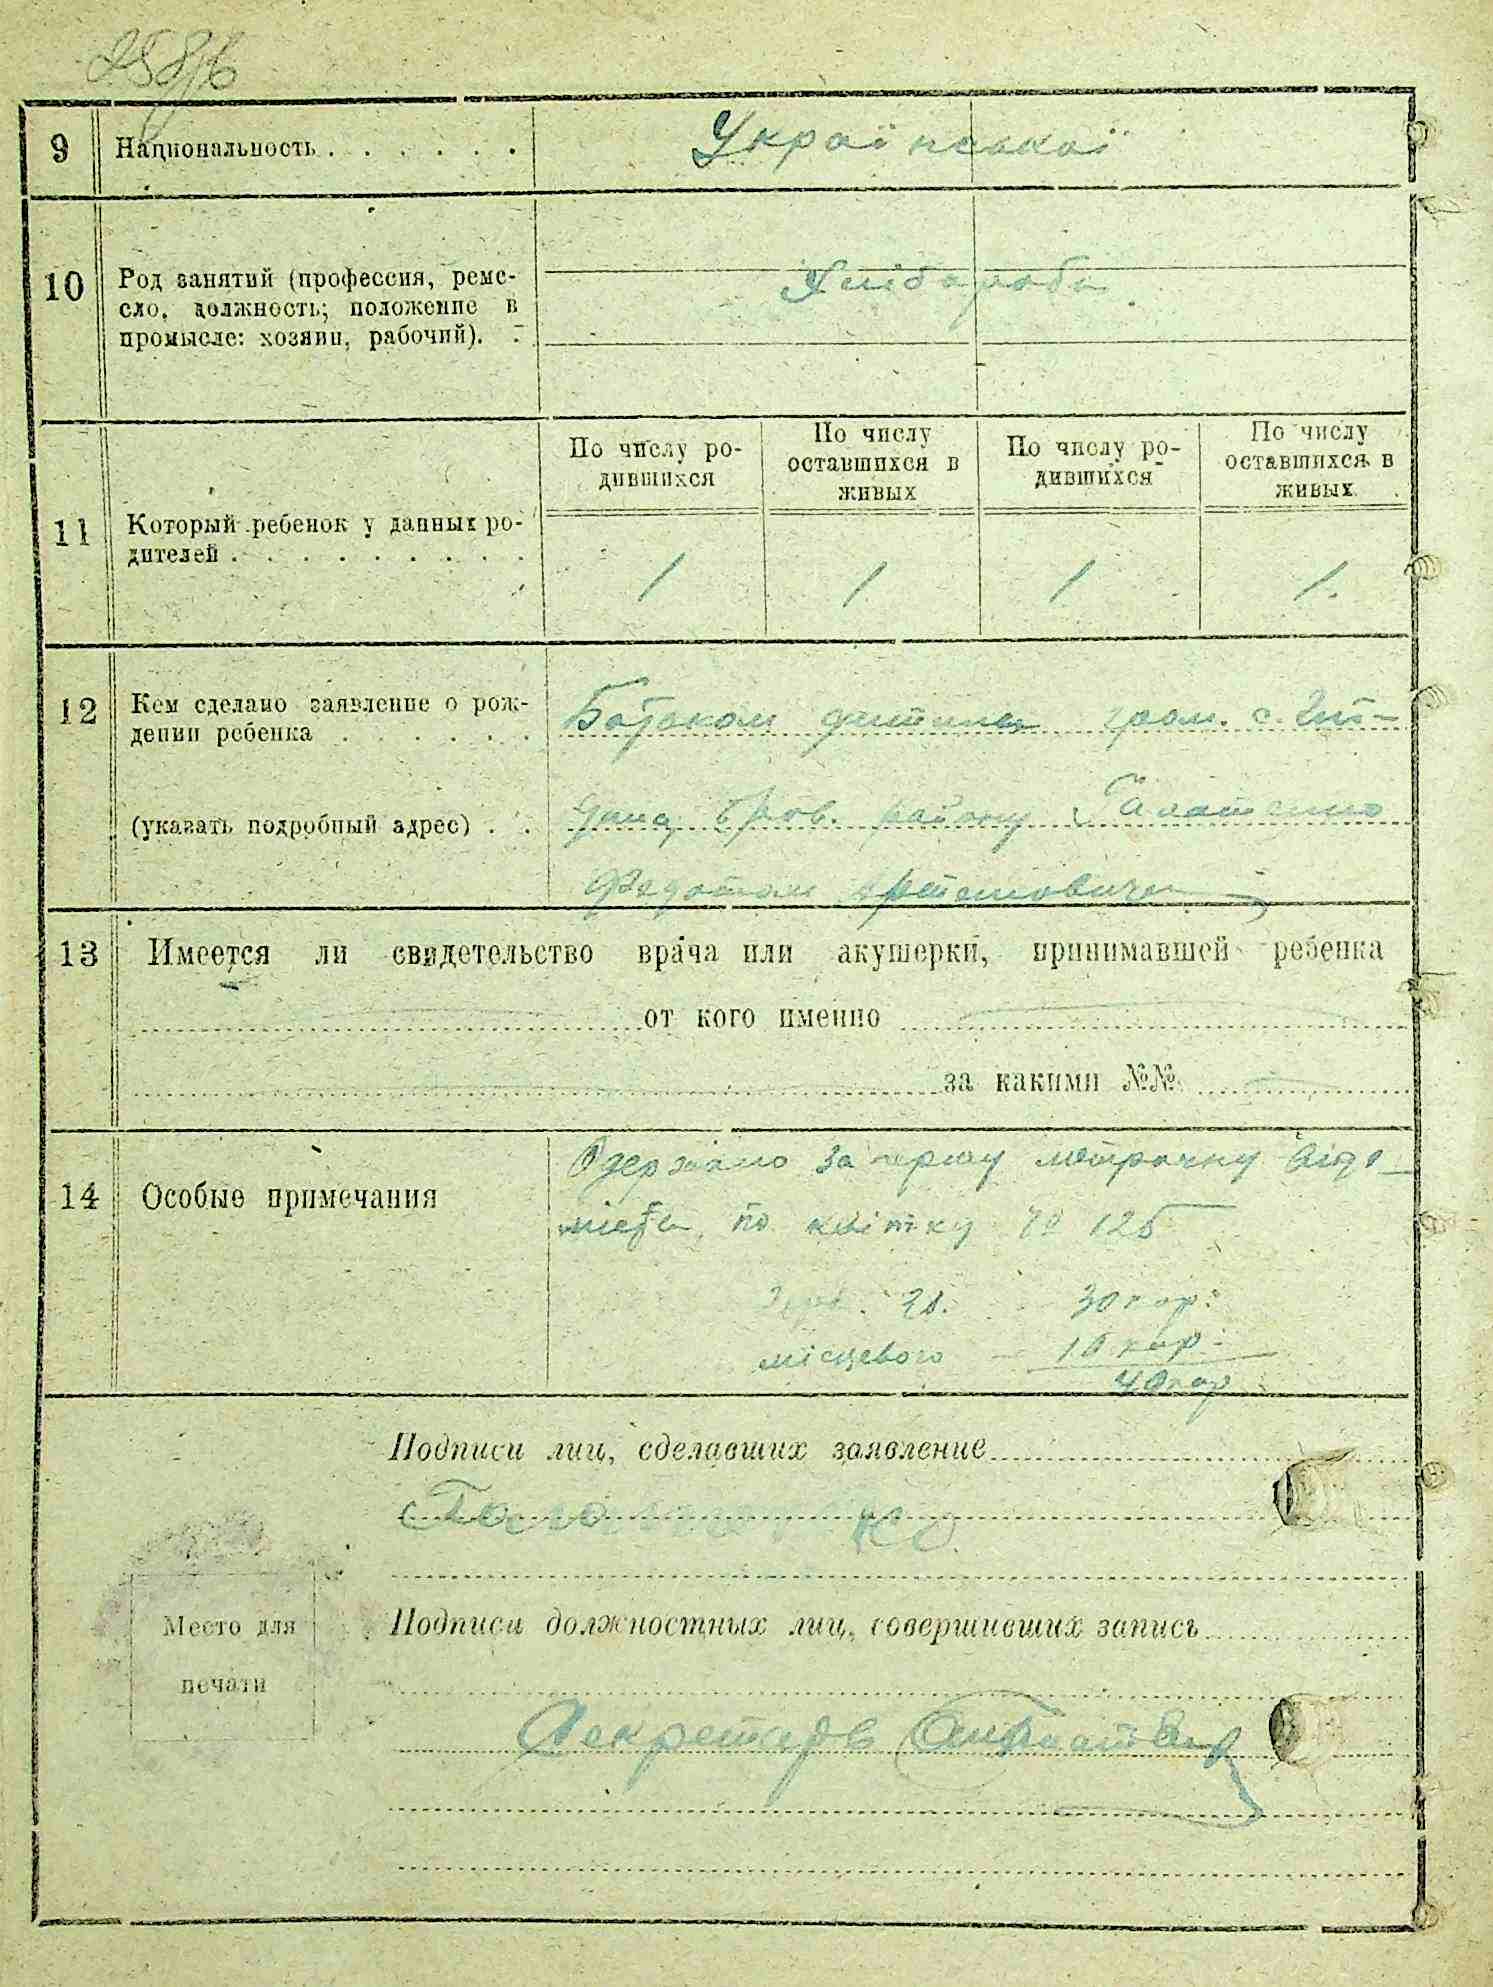 9 Национальность . . . . . . Української
10 Род занятий (профессия, реме-
сло, должность; положение в
промысле: хозяин, рабочий). Хлібороби
По числу ро-
дившихся
По числу
оставшихся в
живых
По числу ро-
дившихся
По числу
оставшихся в
живых
11 Который ребенок у данных ро-
дителей . . . . . . . . . 1 1 1 1.
12 Кем сделано заявление о рож-
дении ребенка . . . . . . Батьком дитини гром. с.
(указать подробный адрес) . . Бров. району Галатенко
Федотом
13 Имеется ли свидетельство врача или акушерки, принимавшей ребенка
от кого именно
за какими №№
14 Особые примечания
Одержано за першу метричну
по квітку № 126
30 кор.
місцевого — 10 кор.
40 кор
Подписи лиц, сделавших заявление
Галатенко
Место для
печати
Подписи должностных лиц, совершивших запись
Секретарь